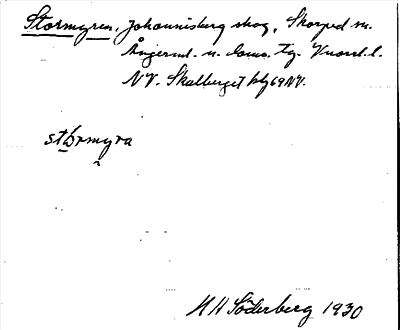 Stormyren, Johannisberg skog, Skorped sn.
Ångerml. n. doms. tg. Vnorrl. l.
NV. Skalberget bl 69NV.
stormyra
H H Söderberg 1930